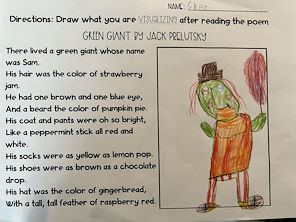 NAME:
Directions: Draw what you are VISUALIZING after reading the poem
GREEN GIANT BY JACK PRELUTSKY
There lived a green giant whose name
was Sam.
His hair was the color of strawberry
jam.
He had one brown and one blue eye,
And a beard the color of pumpkin pie.
His coat and pants were oh so bright,
Like a peppermint stick all red and
white.
His socks were as yellow as lemon pop.
His shoes were as brown as a chocolate
drop.
His hat was the color of gingerbread,
With a tall, tall feather of raspberry red.